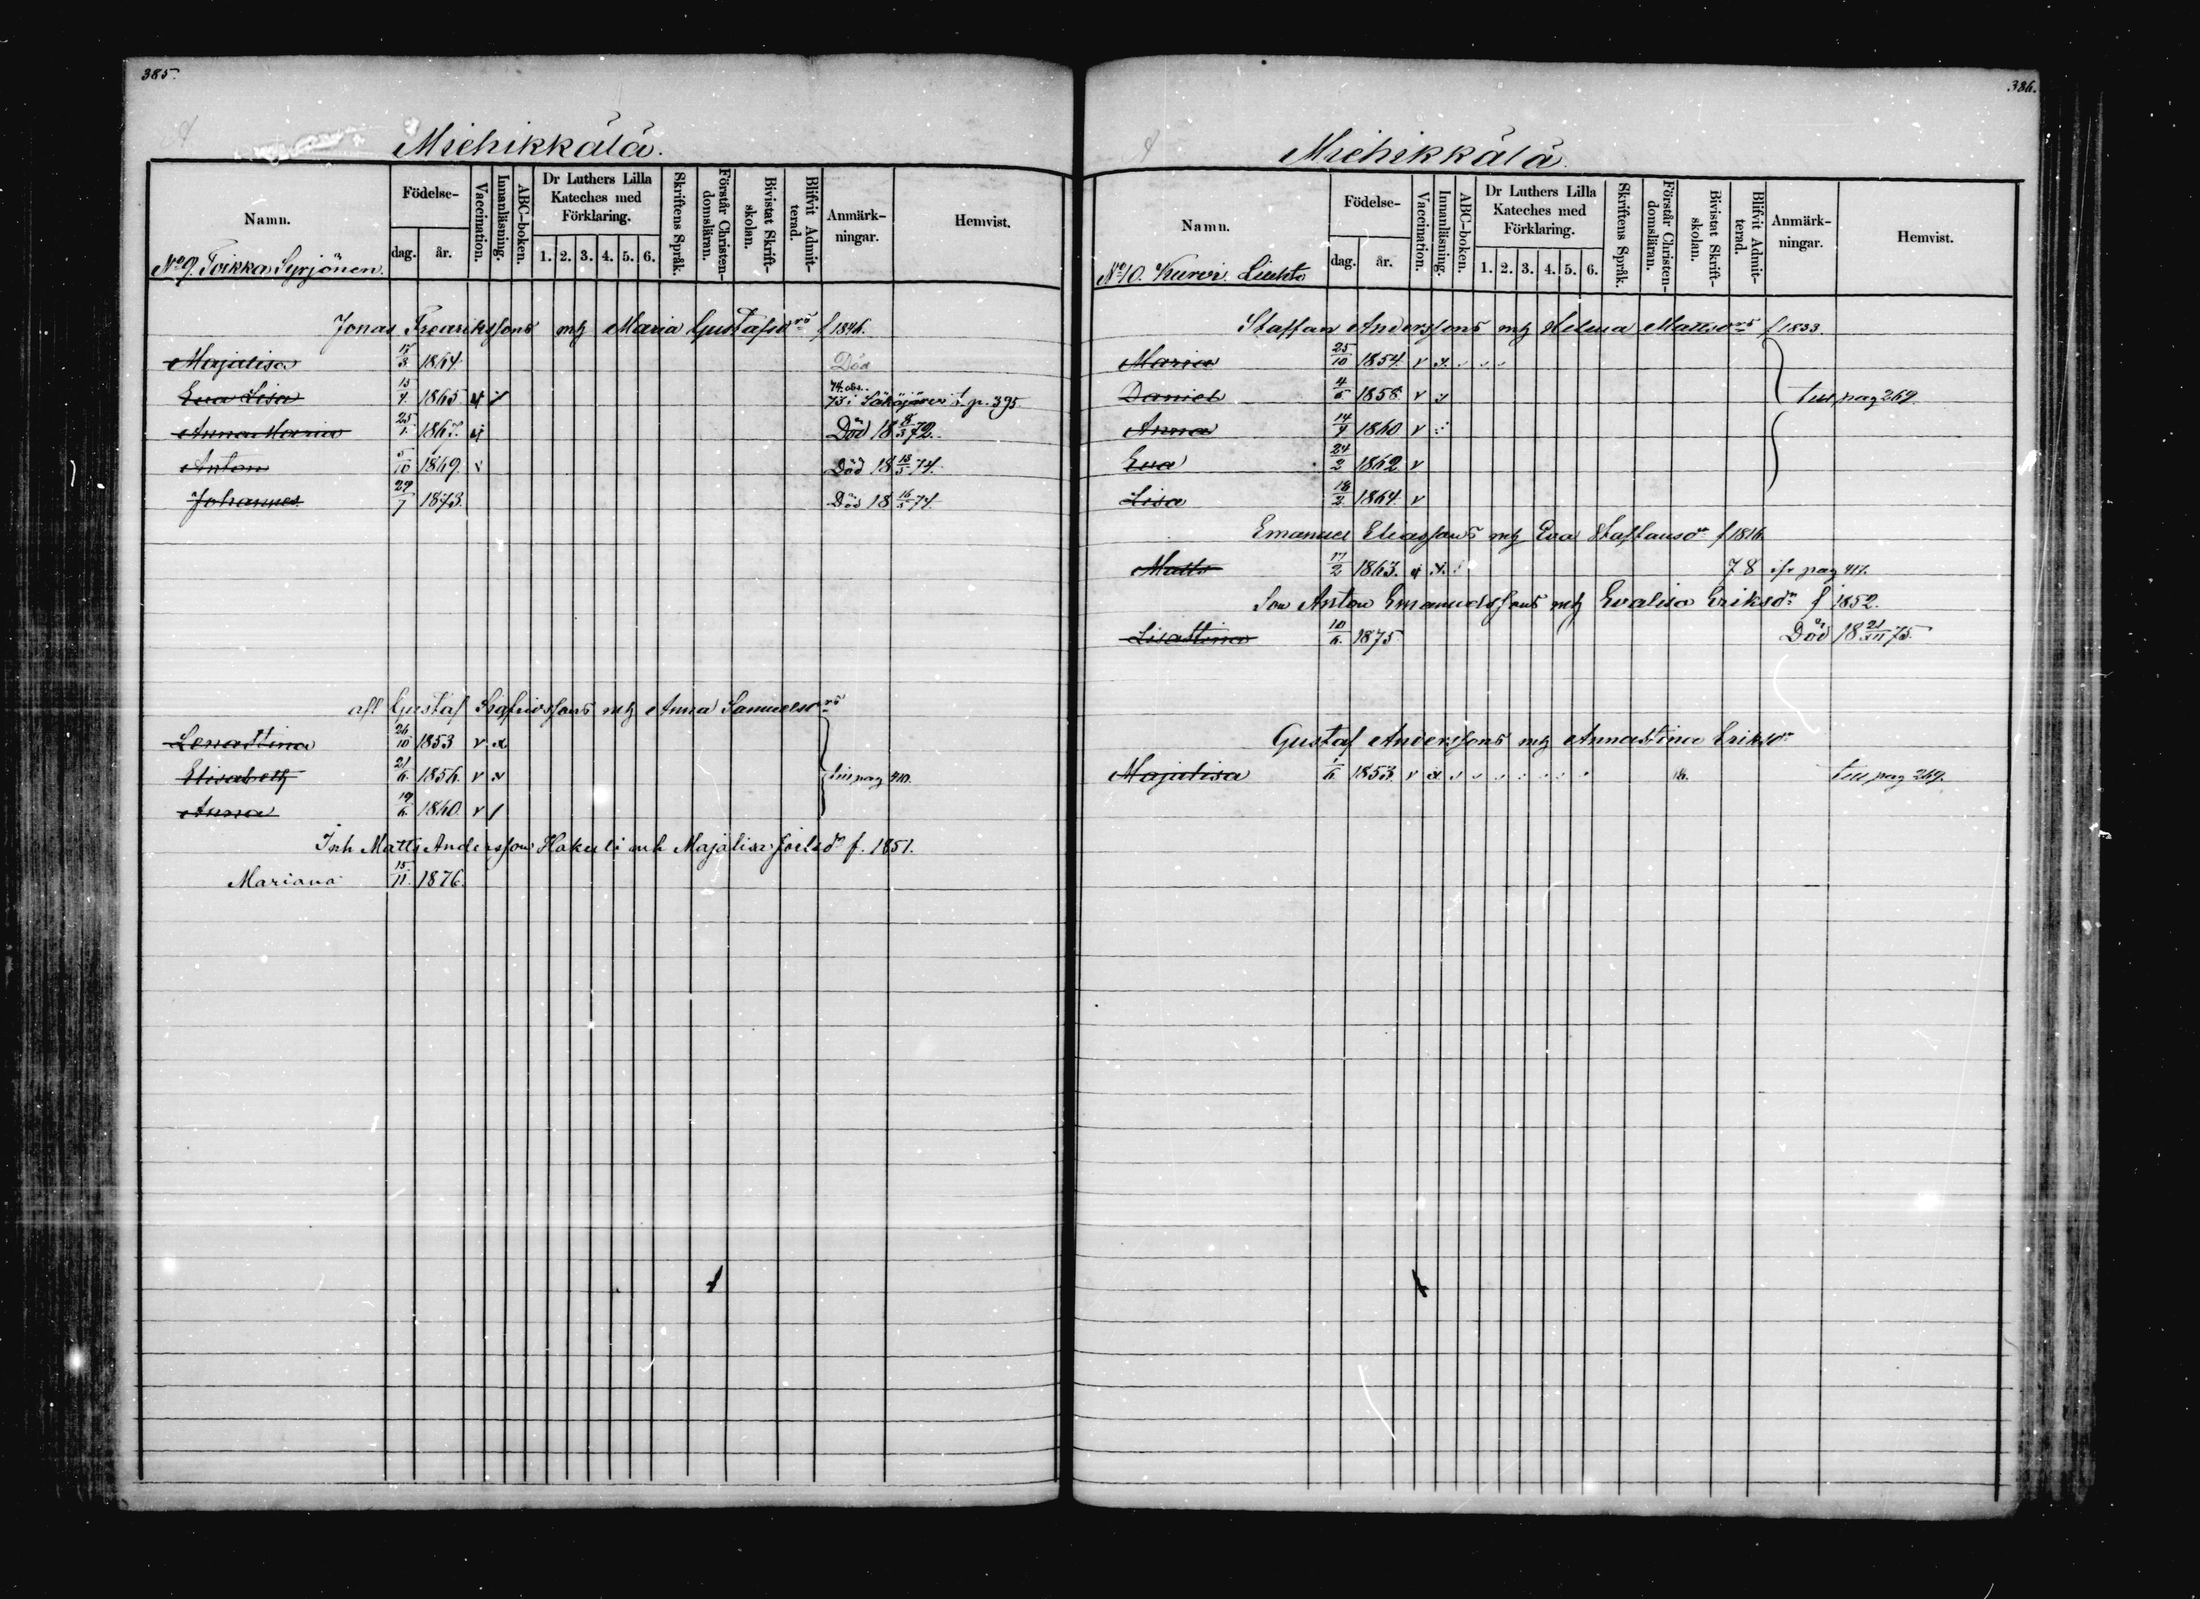 385.
Miehikkälä.
Namn.
Födelse-
dag.
år.
Vaccination.
Innanläsning.
ABC-boken.
Dr Luthers Lilla
Kateches med
Förklaring.
1. 2. 3. 4. 5. 6.
Skriftens Språk.
Förstår Christen-
domsläran.
Bivistat Skrift-
skolan.
Blifvit Admit-
terad.
Anmärk-
ningar.
Hemvist.
No 9. Toikka Syrjönen.
Jonas Fredrikssons mh Maria Gustafsdrs f 1846.
Majalisa 17/3 1864. Död
Eva Lisa 13/4 1865 73 i Säkäjärvi p. 395
Anna Maria 25/1 1867. Död 18 8/3 72.
Anton 5/10 1869. v Död 18 13/5 74.
Johannes 29/7 1873. Död 18 16/5 74.
afl Gustaf Sigfridssons mh Anna Samuelsdrs
Lenastina 26/10 1853 v x
Elisabeth 21/6 1856. v x till pag 410.
Anna 19/6 1860. v /
Inh Matts Anderssons Hakuli mh Majalisa Joelsdr f. 1851.
Mariana 15/11. 1876.
386.
Miehikkälä.
Namn.
Födelse-
dag.
år.
Vaccination.
Innanläsning.
ABC-boken.
Dr Luthers Lilla
Kateches med
Förklaring.
1. 2. 3. 4. 5. 6.
Skriftens Språk.
Förstår Christen-
domsläran.
Bivistat Skrift-
skolan.
Blifvit Admit-
terad.
Anmärk-
ningar.
Hemvist.
No 10. Kurvi Liehto
Staffan Anderssons mh Helena Mattsdrs f 1833.
Maria 25/10 1854. v x
Daniel 4/6 1858. v till pag 269.
Anna 14/9 1860 v
Eva 24/2 1862 v
Lisa 18/2 1864. v
Emanuel Eliassons mh Eva Staffansdr f 1816.
Matts 17/2 1863. x 78 pag 417.
Son Anton Emanuelssons mh Evalisa Eriksdr f 1852.
Lisastina 10/6. 1875 Död 18 21/XII 75.
Gustaf Anderssons mh Annastina Eriksdr
Majalisa 1/6 1853. v x till pag 269.